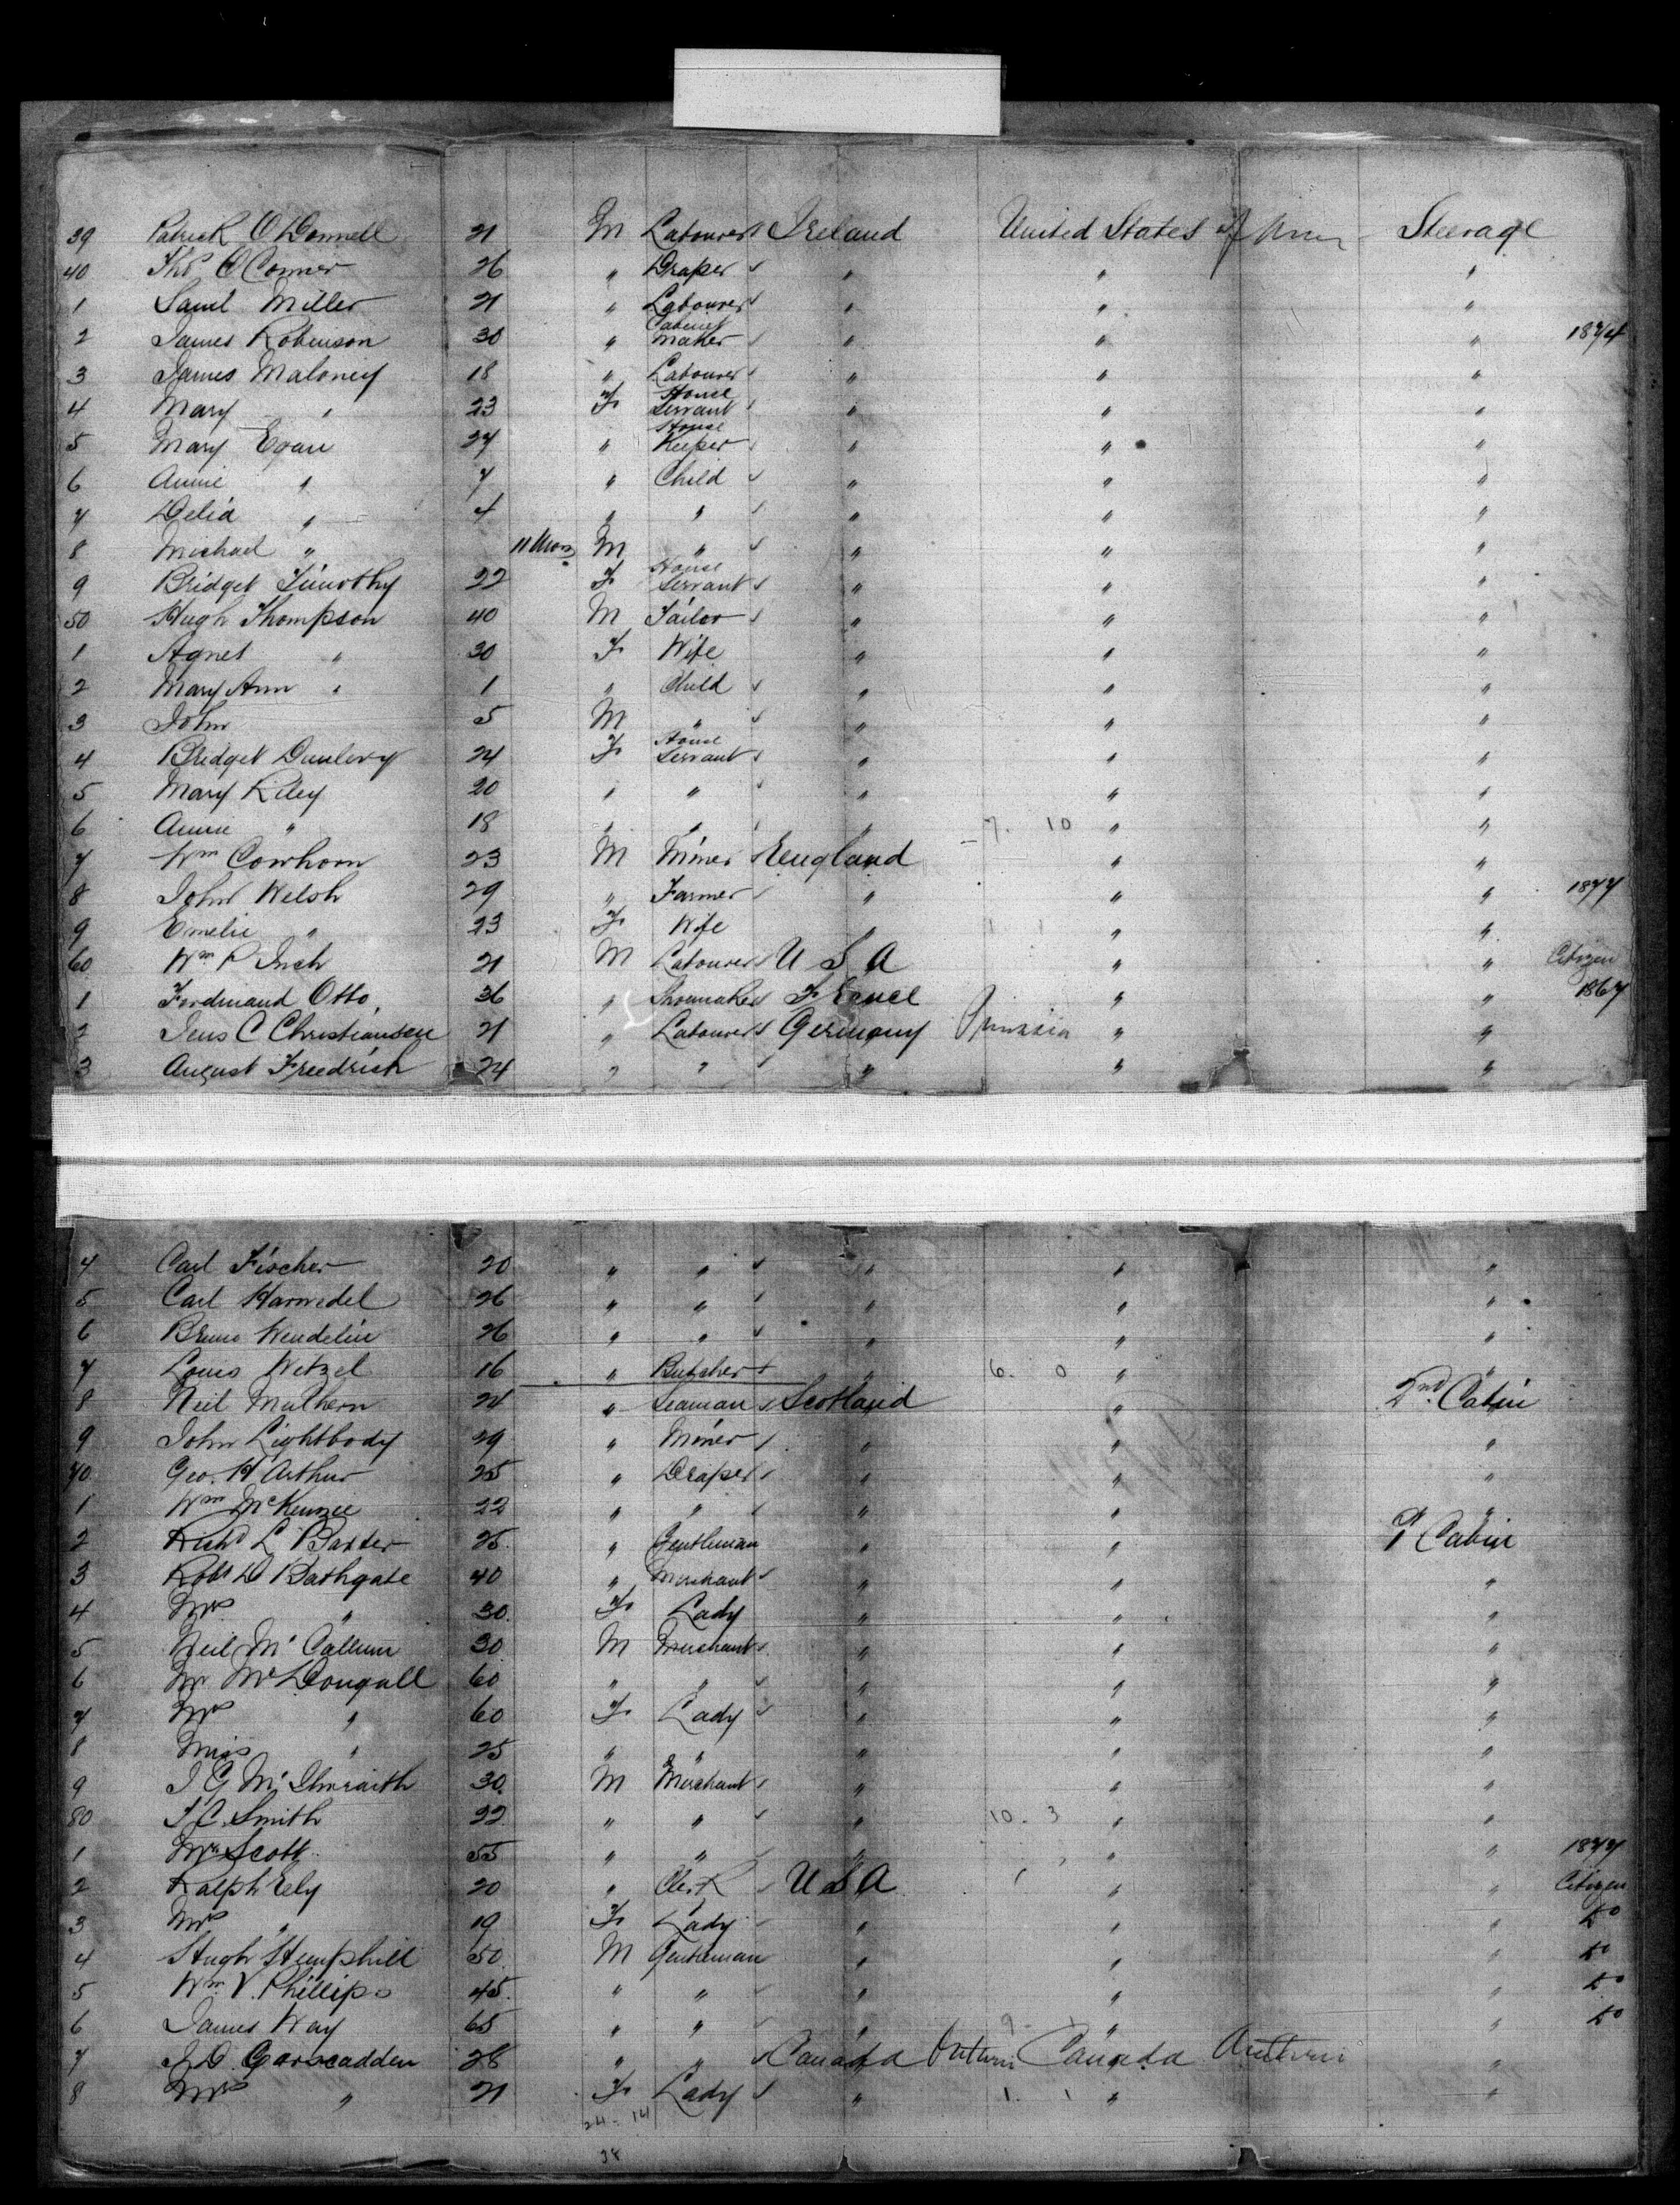 39 Patrick O'Donnell 21 M Labourer Ireland United States of Amer Steerage
40 Thos O'Conner 26 " Draper " " "
1 Saml Miller 21 " Labourer " " "
2 James Robinson 30 " Cabinet Maker " " " 1874
3 James Maloney 18 " Labourer " " "
4 Mary " 23 F House Servant " " "
5 Mary Egan 27 " House Keeper " " "
6 Annie " 7 " Child " " "
7 Delia " 4 " " " " "
8 Michael " 11 Mos M " " " "
9 Bridget Timothy 22 F House Servant " " "
50 Hugh Thompson 40 M Tailor " " "
1 Agnes " 30 F Wife " " "
2 Mary Ann " 1 " Child " " "
3 John 5 M " " " "
4 Bridget Dunlevy 24 F House Servant " " "
5 Mary Riley 20 " " " " "
6 Annie " 18 " " " 7. 10 " "
7 Wm Cowhorn 23 M Miner England " "
8 John Welsh 29 " Farmer " " " 1877
9 Emelie " 23 F Wife " " "
60 Wm P Inch 21 M Labourer U S A " " Citizen
1 Ferdinand Otto 36 " Shoemaker France " " 1867
2 Jens C Christiansen 21 " Labourer Germany Prussia " "
3 August Freedrich 24 " " " " "
4 Carl Fischer 20 " " " " "
5 Carl Harwedel 26 " " " " "
6 Bruno Wendelin 26 " " " " "
7 Louis Wetzel 16 " Butcher " 6. 0 " "
8 Neil Mulhern 24 " Seaman Scotland " 2nd Cabin
9 John Lightbody 29 " Miner " " "
70 Geo. H Arthur 25 " Draper " " "
1 Wm McKenzie 22 " " " " "
2 Richd L Baxter 25. " Gentleman " " 1st Cabin
3 Robt D Bathgate 40 " Merchant " " "
4 Mrs " 30. F Lady " " "
5 Neil McCallum 30 M Merchant " " "
6 Mr McDougall 60 " " " " "
7 Mrs " 60 F Lady " " "
8 Miss " 25 " " " " "
9 J G McIlwraith 30. M Merchant " " "
80 T. C. Smith 22 " " " 10. 3 " "
1 Mr Scott 55 " " " " " 1877
2 Ralph Ely 20 " Clerk U S A " " Citizen
3 Mrs " 19 F Lady " " " Do
4 Hugh Hemphill 50. M Gentleman " " " Do
5 Wm V. Phillips 45. " " " " " Do
6 James Way 65 " " " 9. 1 " " Do
7 J. D. Garscadden 28 " " Canada Canada "
8 Mrs " 21 F Lady " 1. 1 " "
24-14
38